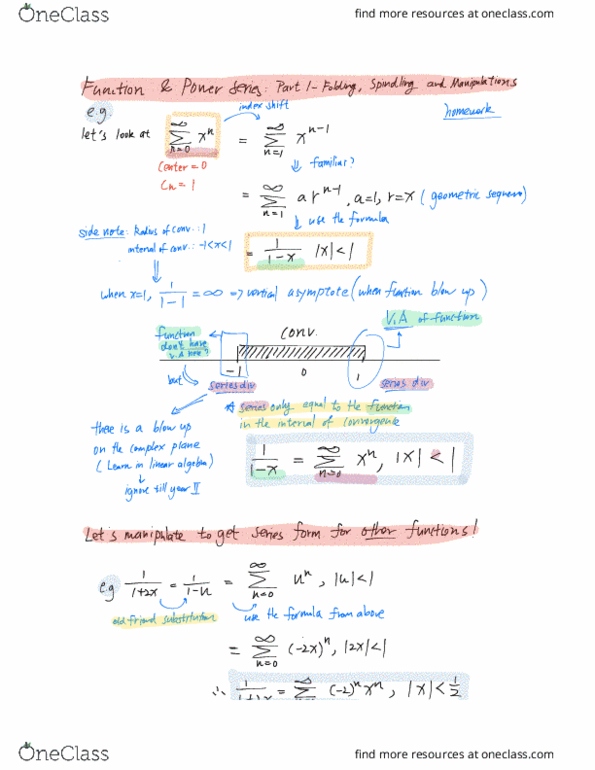 OneClass
find more resources at oneclass.com
Function & Power Series: Part 1 - Folding, Spindling and Manipulations
e.g.
index shift
homework
let's look at ∞ Σ n=0 xⁿ = ∞ Σ n=1 xⁿ⁻¹
Center = 0
Cn = 1
⇓ familiar?
= ∞ Σ n=1 a rⁿ⁻¹, a=1, r=x (geometric sequence)
⇓ use the formula
side note: Radius of conv.: 1
interval of conv.: -1<x<1
= 1/(1-x) |x|<1
when x=1, 1/(1-1) = ∞ => vertical asymptote (when function blow up)
function don't have V.A here?
conv.
V.A of function
-1 0 1
but
series div
series div
* series only equal to the function
in the interval of convergence
there is a blow up
on the complex plane
(Learn in linear algebra)
↓
ignore till year II
1/(1-x) = ∞ Σ n=0 xⁿ, |x| < 1
Let's maniplate to get series form for other functions!
e.g 1/(1+2x) = 1/(1-u) = ∞ Σ n=0 uⁿ, |u|<1
old friend substitution
use the formula from above
= ∞ Σ n=0 (-2x)ⁿ, |2x|<1
∴ 1/(1+2x) = ∞ Σ (-2)ⁿ xⁿ, |x| < 1/2
OneClass
find more resources at oneclass.com